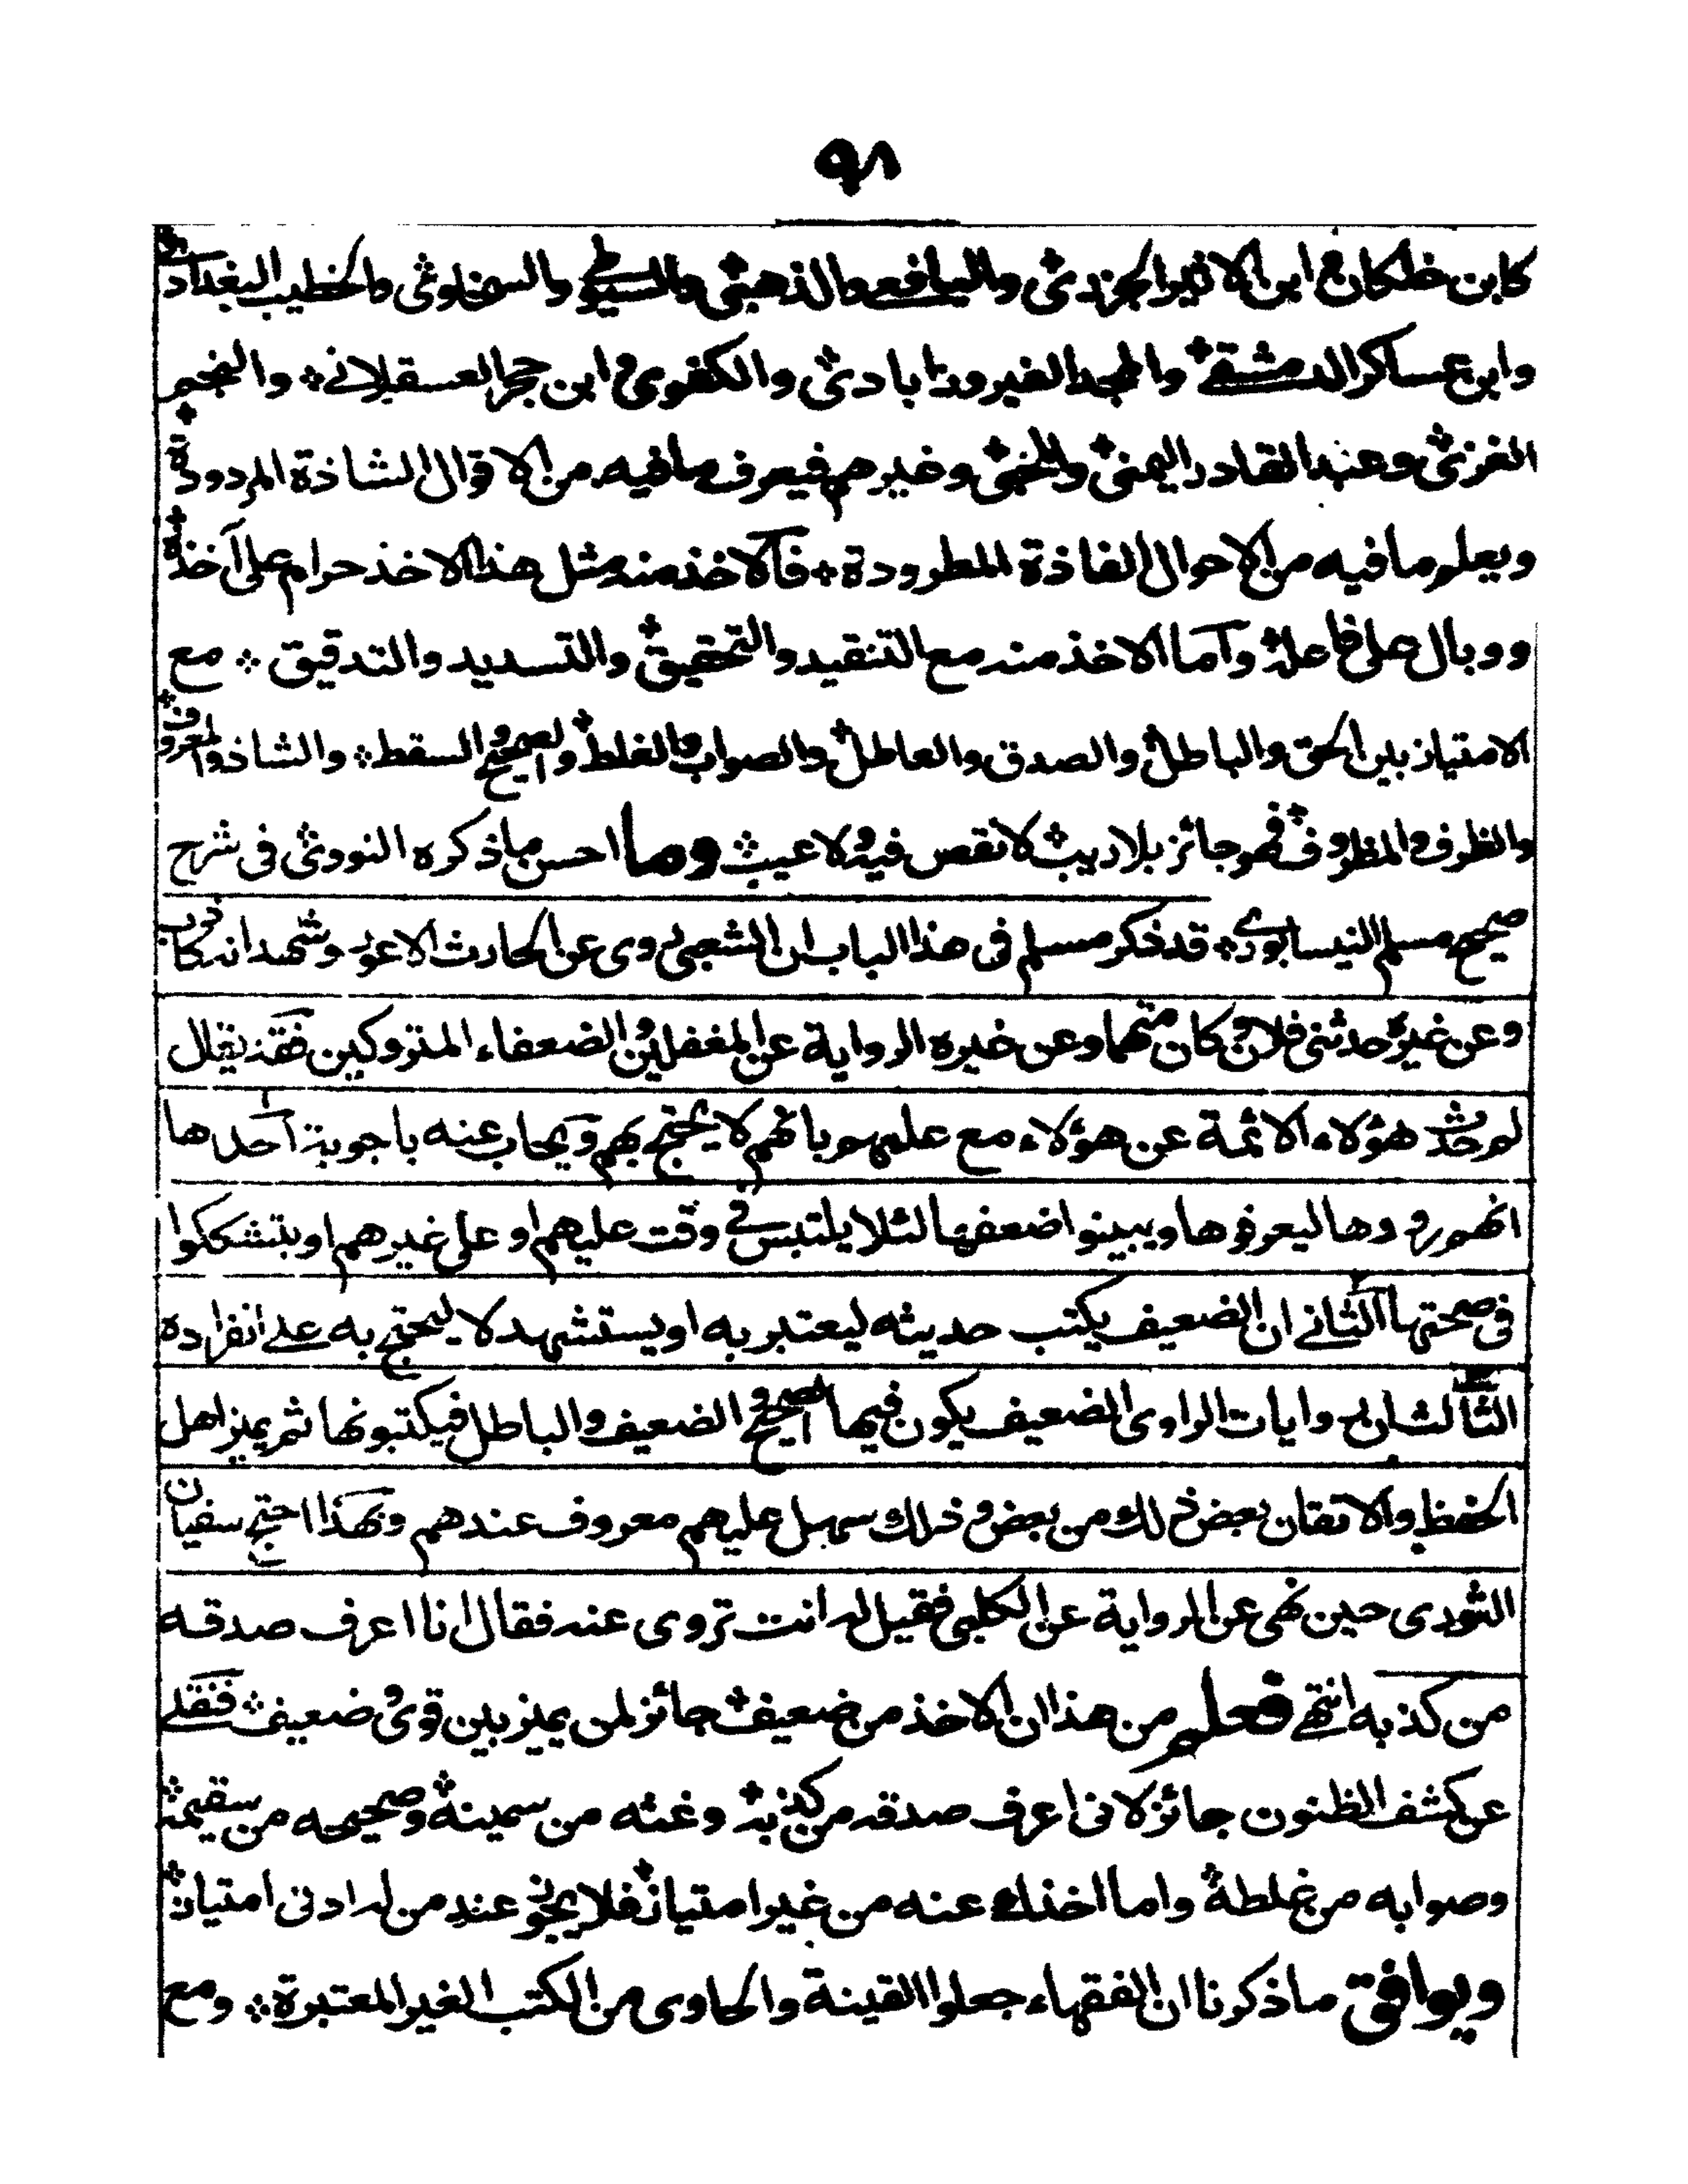 ٩٨
كابن خلكان وابن الاثير الجزرى واليافعى والذهبى والسيوطى والسخاوى والخطيب البغدادى
وابن عساكر الدمشقى والمجد الفيروزابادى والكفوى وابن حجر العسقلانى والنجم
الغزى وعبد القادر اليمنى وغيرهم فيعرف ما فيه من الاقوال الشاذة المردودة
ويعلم ما فيه من الاحوال الفاذة المطرودة فالاخذ منه مثل هذا الاخذ حرام على آخذه
ووبال على فاعله وآما الاخذ منه مع التنقيد والتحقيق والتسديد والتدقيق مع
الامتياز بين الحق والباطل والصدق والعاطل والصواب والغلط والصحيح والسقط والشاذ والمعروف
والظرف والمظروف فهو جائز بلا ريب لا نقص فيه ولا عيب وما احسن ما ذكره النووى فى شرح
صحيح مسلم النيسابورى قد ذكر مسلم فى هذا الباب ان الشعبى روى عن الحارث الاعور وشهد انه كاذب
وعن غيره حدثنى فلان وكان متهما وعن غيره الرواية عن المغفلين والضعفاء المتروكين فقد يقال
لم حدث هؤلاء الائمة عن هؤلاء مع علمهم بانهم لا يحتج بهم ويجاب عنه باجوبة آحدها
انهم رووها ليعرفوها ويبينوا ضعفها لئلا يلتبس فى وقت عليهم او على غيرهم او يتشككوا
فى صحتها الثانى ان الضعيف يكتب حديثه ليعتبر به او يستشهد لا ليحتج به على انفراده
الثالث ان روايات الراوى الضعيف يكون فيها الصحيح والضعيف والباطل فيكتبونها ثم يميز اهل
الحفظ والاتقان بعض ذلك من بعض وذلك سهل عليهم معروف عندهم وبهذا احتج سفيان
الثورى حين نهى عن الرواية عن الكلبى فقيل له انت تروى عنه فقال انا اعرف صدقه
من كذبه انتهى فعلم من هذا ان الاخذ من ضعيف جائز لمن يميز بين قوى وضعيف فنقلى
عن كشف الظنون جائز لانى اعرف صدقه من كذبه وغثه من سمينه وصحيحه من سقيمه
وصوابه من غلطه واما اخذك عنه من غير امتياز فلا يجوز عند من له ادنى امتياز
ويوافق ما ذكرنا ان الفقهاء جعلوا القينة والحاوى من الكتب الغير المعتبرة ومع